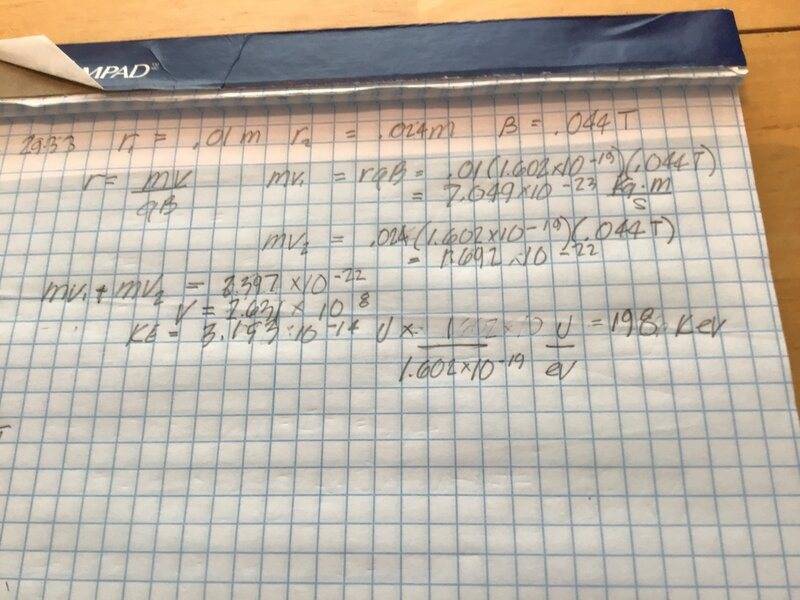 MPAD
29.33 r₁ = .01 m r₂ = .024m B = .044 T
r = mv/qB mv₁ = rqB = .01(1.602×10⁻¹⁹)(.044T)
= 7.049×10⁻²³ kg·m/s
mv₂ = .024(1.602×10⁻¹⁹)(.044T)
= 1.692 ×10⁻²²
mv₁ + mv₂ = 2.397 ×10⁻²²
V = 2.631 × 10⁸
KE = 3.153·10⁻¹⁴ J × 1/1.602×10⁻¹⁹ J/eV = 198. KeV